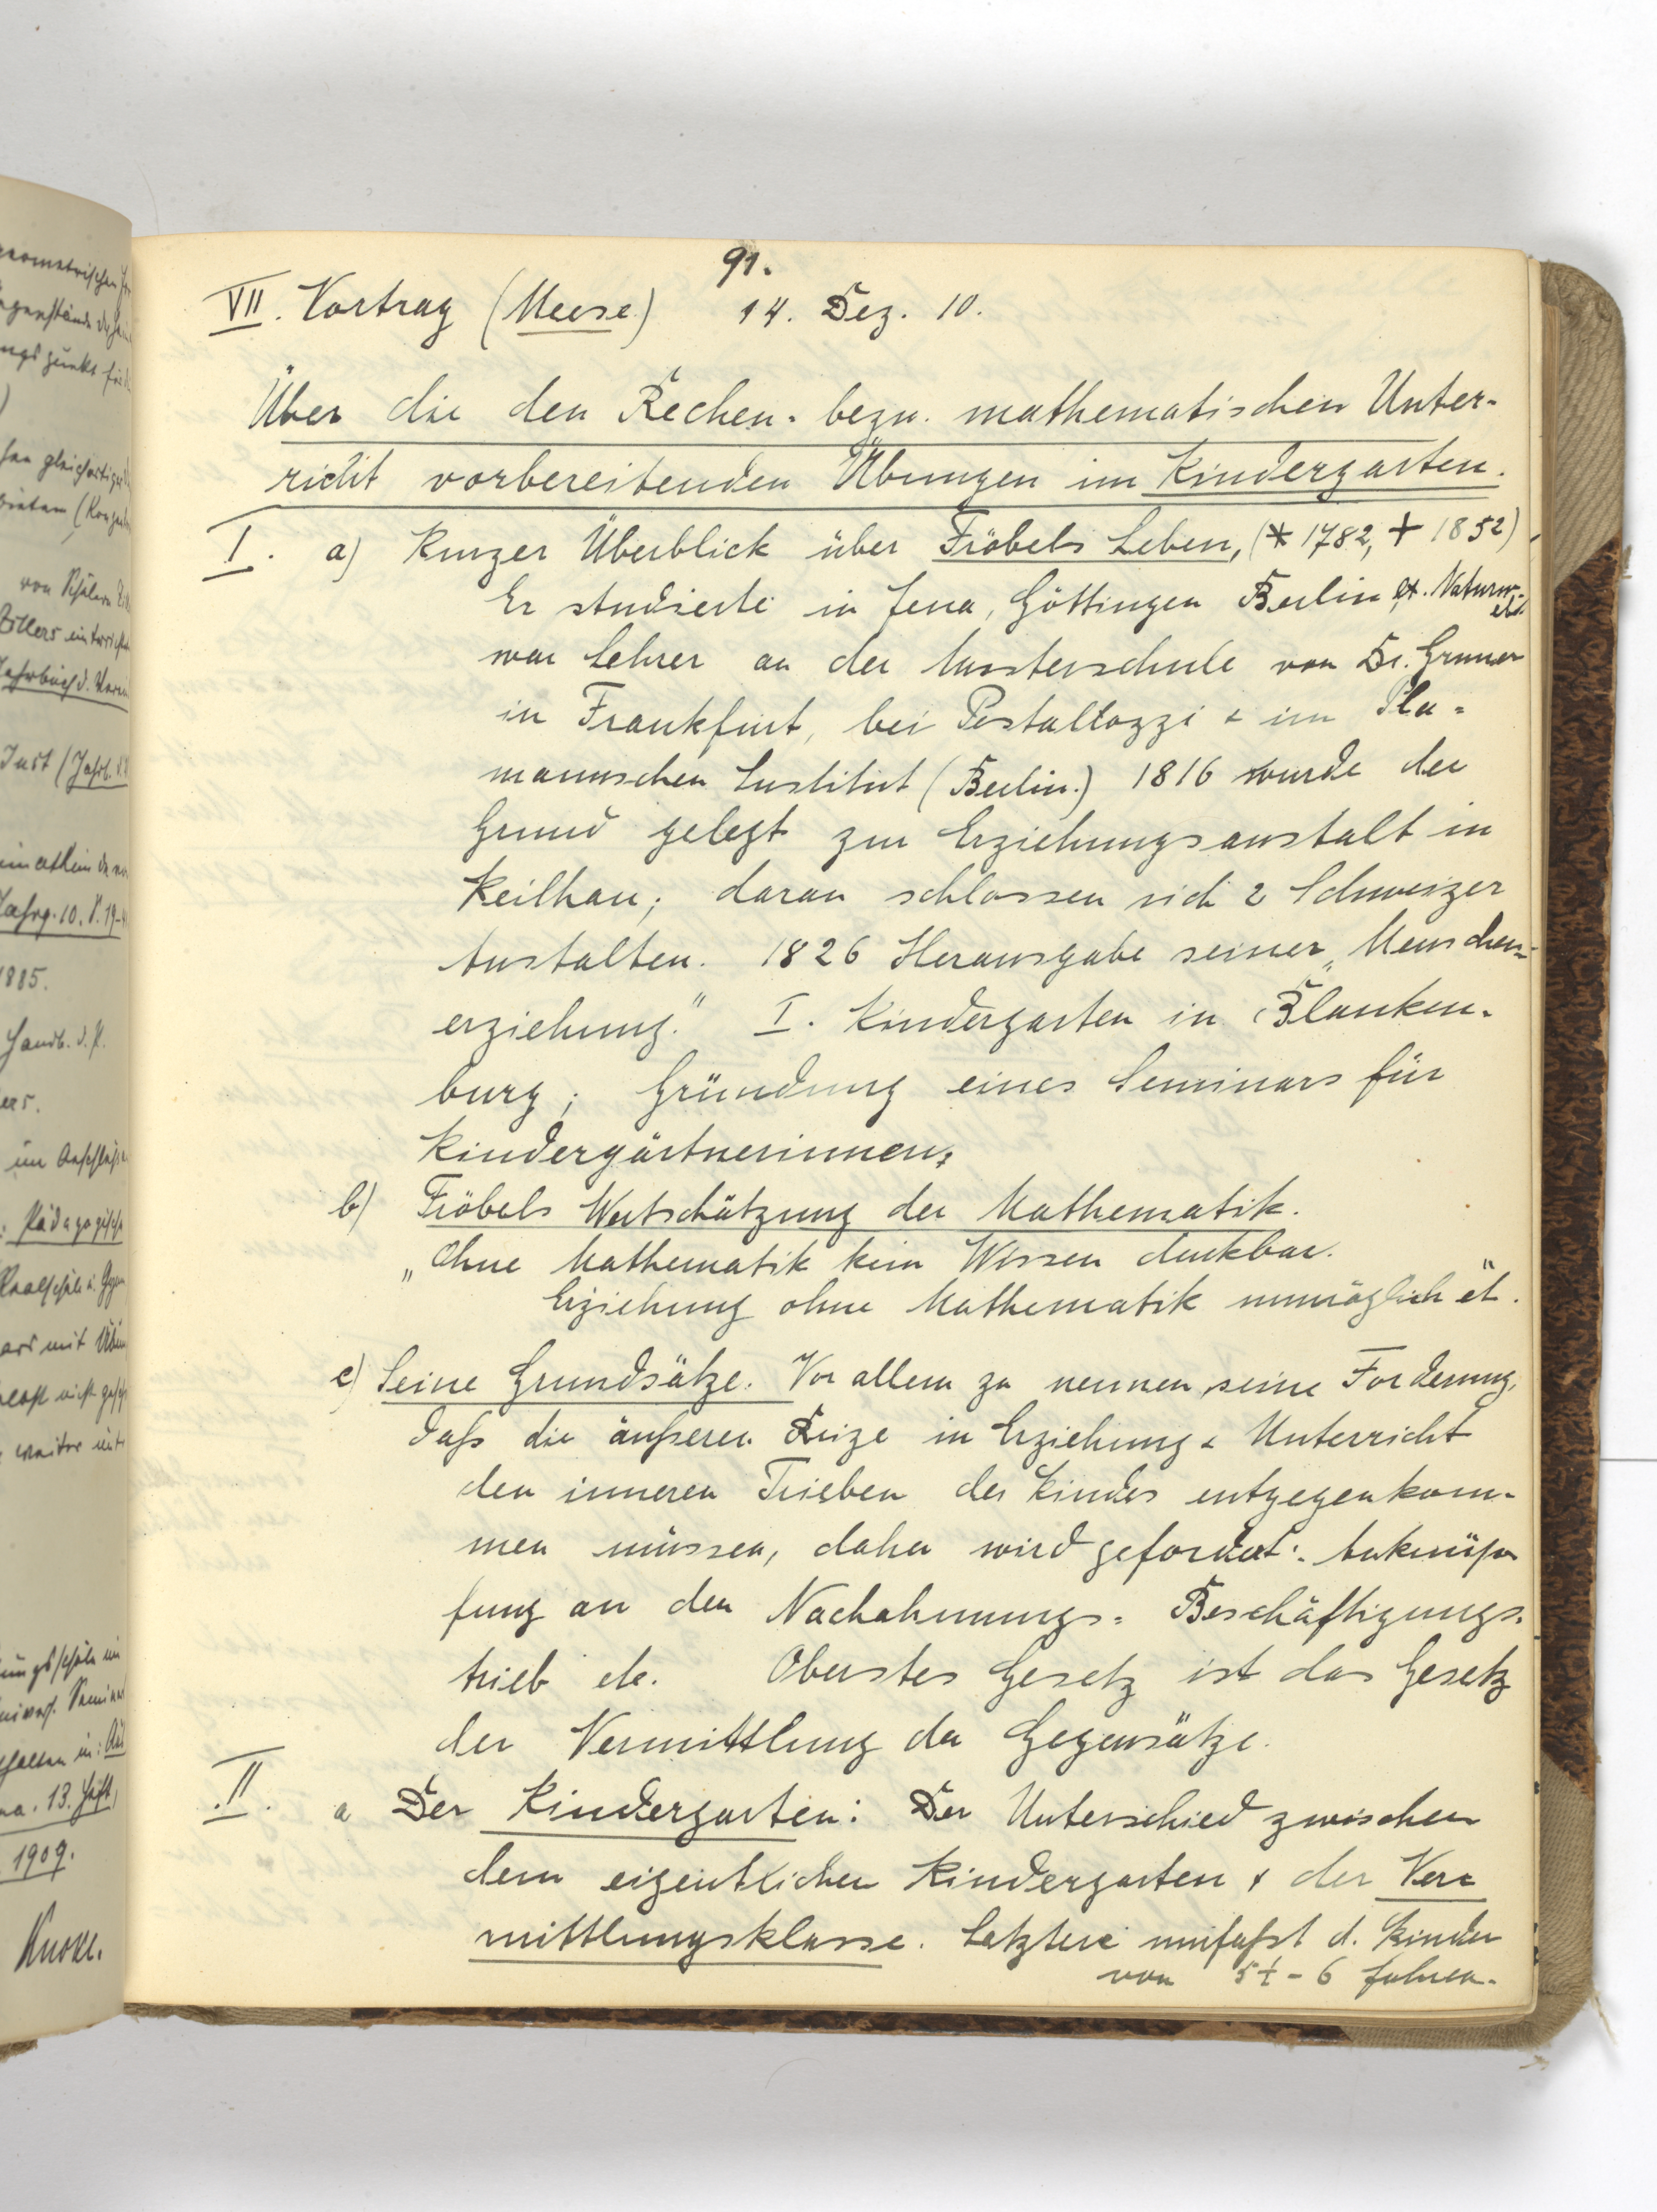 91.
VII. Vortrag (Meese.) 14. Dez. 10.
Über die den Rechen- bezw. mathematischen Unter-
richt vorbereitenden Übungen im Kindergarten.
I. a) Kurzer Überblick über Fröbels Leben, (* 1782, + 1852)
Er studierte in Jena, Göttingen Berlin Naturw.
war Lehrer an der Musterschule von Dr. Gruner
in Frankfurt, bei Pestallozzi & im Pla=
mannschen Institut (Berlin.) 1816 wurde der
Grund gelegt zur Erziehungsanstalt in
Keilhau; daran schlossen sich 2 Schweizer
Anstalten. 1826 Herausgabe seiner „Menschen=
erziehung." I. Kindergarten in Blanken-
burg; Gründung eines Seminars für
Kindergärtnerinnen;
b) Fröbels Wertschätzung der Mathematik.
„Ohne Mathematik kein Wissen denkbar.
Erziehung ohne Mathematik unmöglich etc."
c) Seine Grundsätze. Vor allem zu nennen seine Forderung,
dass die äusseren Reize in Erziehung & Unterricht
den inneren Trieben des Kindes entgegenkom-
men müssen, daher wird gefordert: Anknüp
fung an den Nachahmungs= Beschäftigungs-
trieb etc. Oberstes Gesetz ist das Gesetz
der Vermittlung der Gegensätze.
II. a Der Kindergarten: Der Unterschied zwischen
dem eigentlichen Kindergarten & der Ver=
mittlungsklasse. Letztere umfasst d. Kinder
von 5½ - 6 Jahren.
von Schülern
Just (Jahrb.
Jahrg. 10. S. 19-
1885.
Handb. d. P.
im Anschluss
: Pädagogische
Realschule u. Gym
weiter
13. Heft,
1909.
Knoke.